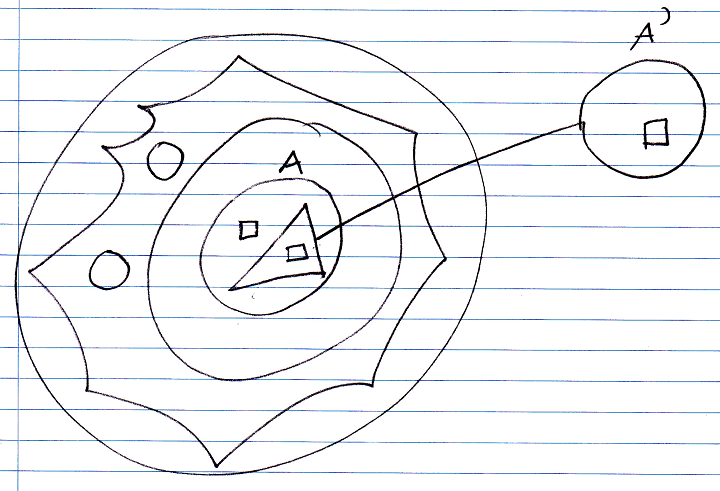 A'
A